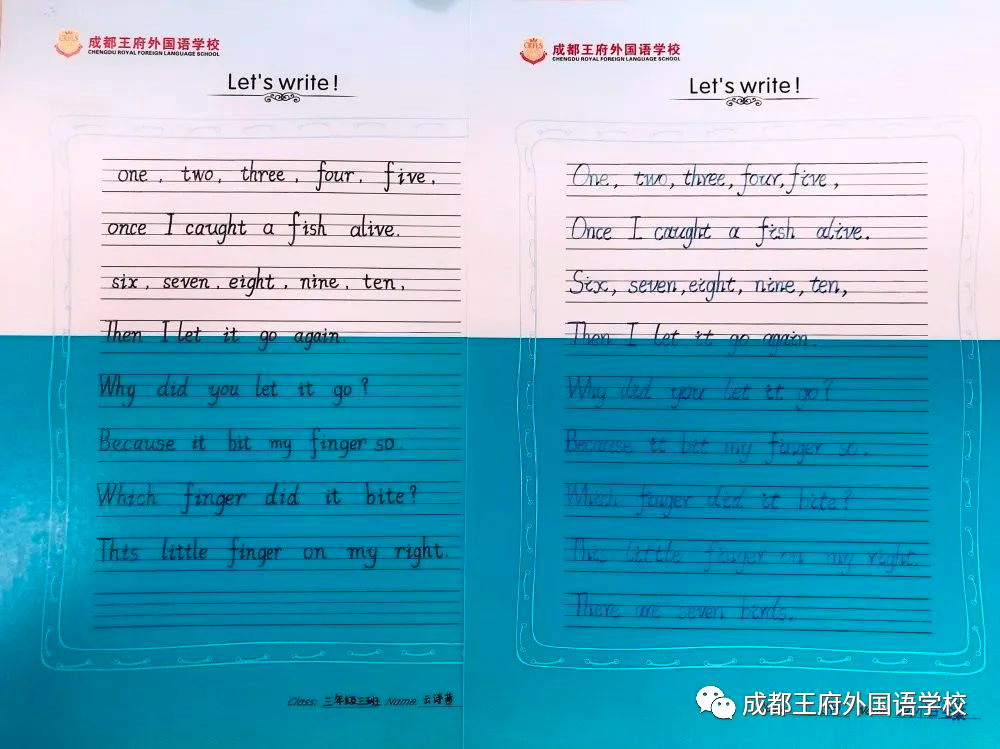 成都王府外国语学校
CHENGDU ROYAL FOREIGN LANGUAGE SCHOOL
Let's write!
one, two, three, four, five,
once I caught a fish alive.
six, seven, eight, nine, ten,
Then I let it go again.
Why did you let it go?
Because it bit my finger so.
Which finger did it bite?
This little finger on my right.
Class: 三年级三班 Name:
CRFLS
成都王府外国语学校
CHENGDU ROYAL FOREIGN LANGUAGE SCHOOL
Let's write!
One, two, three, four, five,
Once I caught a fish alive.
Six, seven, eight, nine, ten,
Then I let it go again.
Why did you let it go?
Because it bit my finger so.
Which finger did it bite?
This little finger on my right.
There are seven birds.
成都王府外国语学校